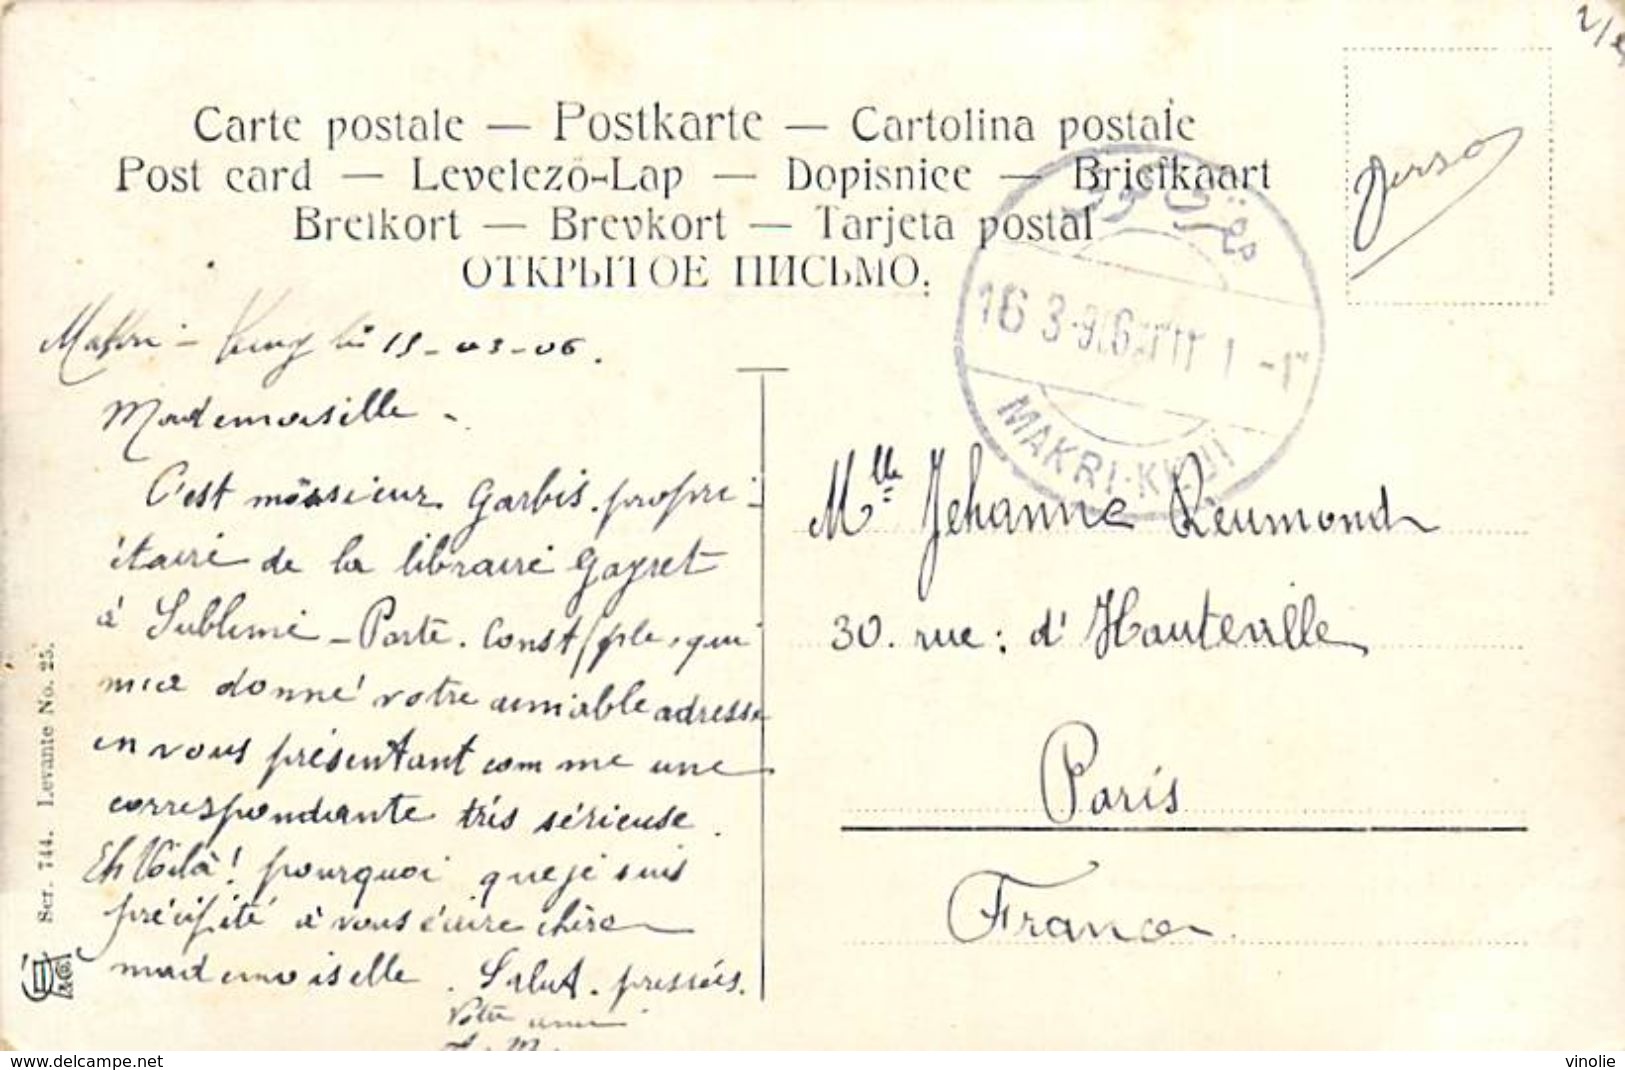 Carte postale — Postkarte — Cartolina postale
Post card — Levelezö-Lap — Dopisnice — Briefkaart
Brefkort — Brevkort — Tarjeta postal
ОТКРЫТОЕ ПИСЬМО.
verso
2/
Makri - Keuy le 15-03-06.
Mademoiselle -
C'est monsieur Garbis. propri-
étaire de la librairie Gayret
à Sublime-Porte. Const/ple, qui
m'ca donné votre aimable adresse
en vous présentant comme une
correspondante très sérieuse.
Eh Voilà! pourquoi que je suis
précipité à vous écrire chère
mademoiselle. Salut. pressés.
Votre ami
A. M
مقرى كوى
16 3-906
MAKRI-KEUI
Mlle Jehanne Reumond
30. rue: d'Hauteville
Paris
France
Ser. 744. Levante No. 25.
https://www.delcampe.net
vinolie